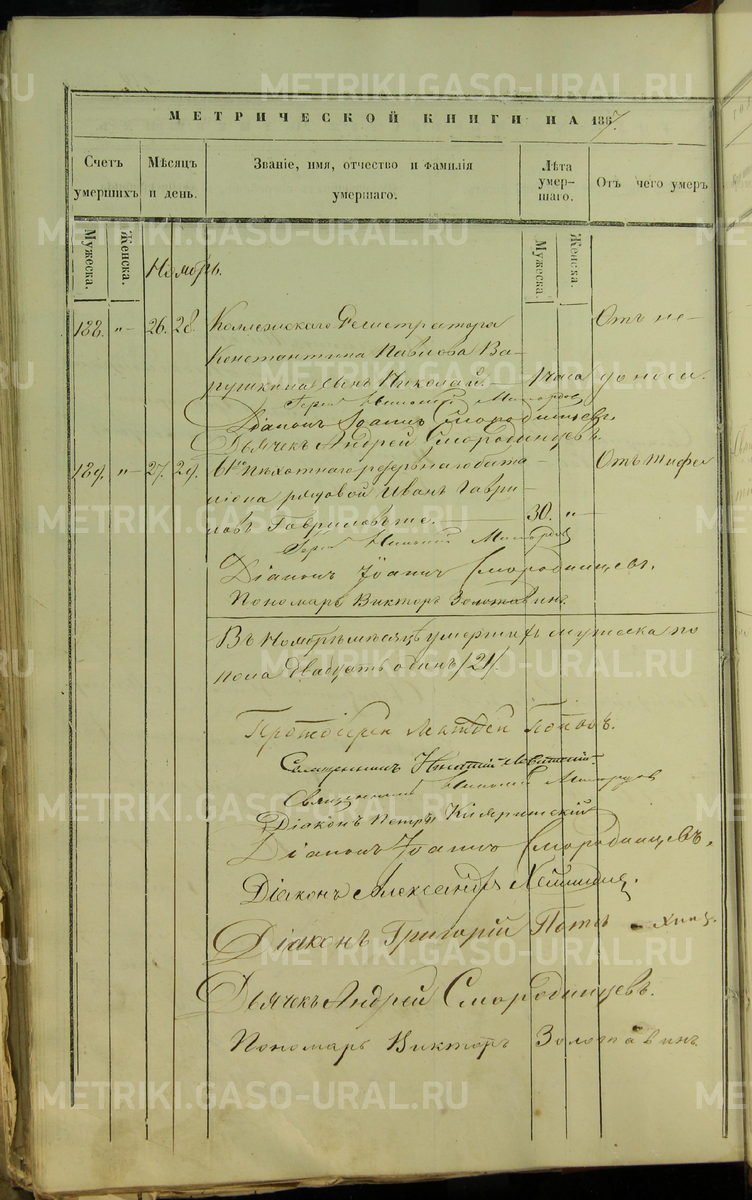 МЕТРИЧЕСКОЙ КНИГИ НА 1867.
Счетъ умершихъ
Мѣсяцъ и день.
Званіе, имя, отчество и фамилія умершаго.
Лѣта умершаго.
Отъ чего умеръ
Мужеска.
Женска.
Мужеска.
Женска.
Ноябрь.
188. „ — 26. 28. Коллежскаго Регистратора Отъ не-
Константина Павлова Ва-
рушкина сынъ Николай. — 1 часа доноса.
Діаконъ Іоаннъ Смородинцевъ.
Дьячекъ Андрей Смородинцевъ.
189. „ — 27. 29. пѣхотнаго резервнаго бата- Отъ тифа
ліона рядовой Иванъ Гаври-
ловъ Гавриловъ же. — 30. „ —
Діаконъ Іоаннъ Смородинцевъ.
Пономарь Викторъ Золотавинъ.
Въ Ноябрѣ мѣсяцѣ умершихъ мужеска по
пола двадцать одинъ /21/.
Протоіерей Матвей Поповъ.
Священникъ
Священникъ
Діаконъ Петръ
Діаконъ Іоаннъ Смородинцевъ.
Діаконъ Александръ
Діаконъ Григорій
Дьячекъ Андрей Смородинцевъ.
Пономарь Викторъ Золотавинъ.
METRIKI.GASO-URAL.RU